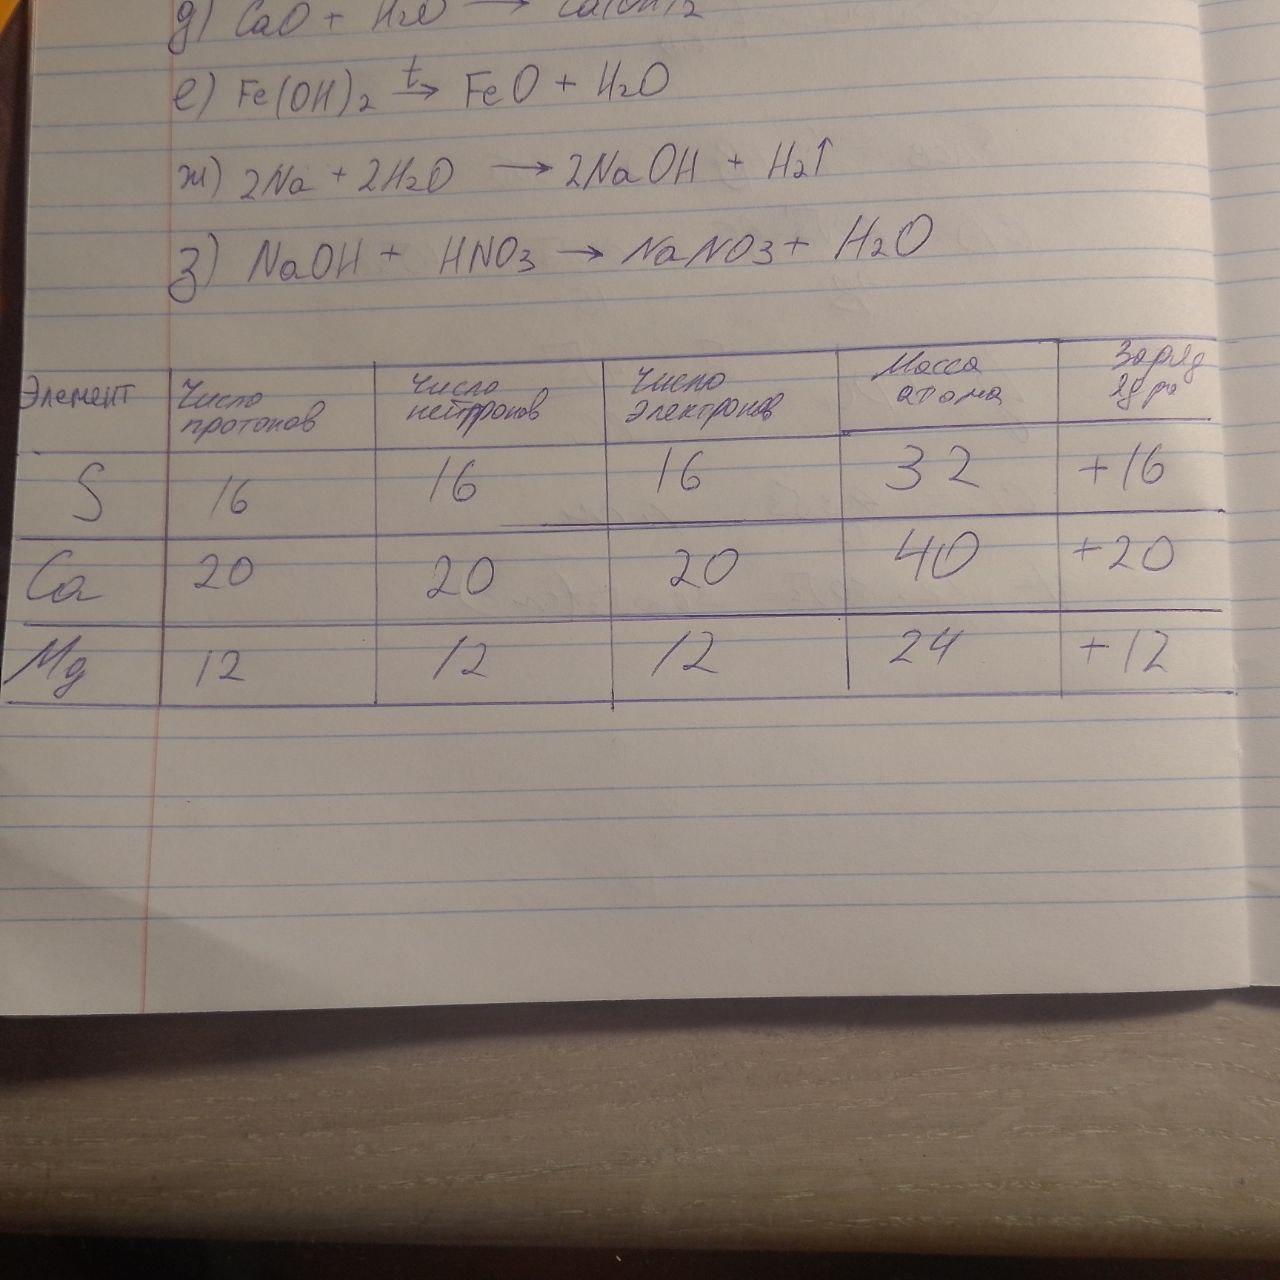 д) CaO + H2O → Ca(OH)2
е) Fe(OH)2 t→ FeO + H2O
ж) 2Na + 2H2O → 2NaOH + H2↑
з) NaOH + HNO3 → NaNO3 + H2O
Элемент Число протонов Число нейтронов Число электронов Масса атома Заряд ядра
S 16 16 16 32 +16
Ca 20 20 20 40 +20
Mg 12 12 12 24 +12